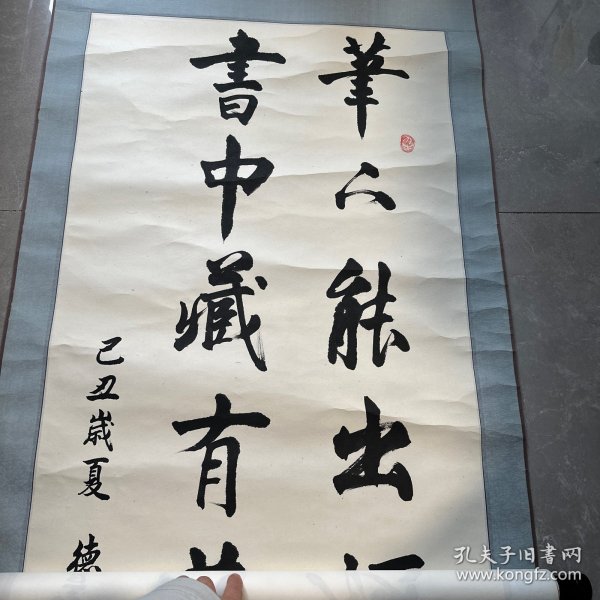 筆下能出
書中藏有
己丑歲夏 德
孔夫子旧书网
www.kongfz.com